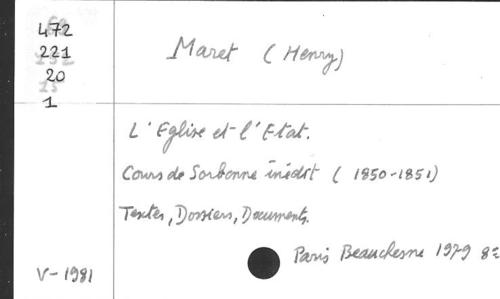 472
221
20
1
Maret (Henry)
L'Eglise et l'Etat.
Cours de Sorbonne inédit (1850-1851)
Textes, Dossiers, Documents.
Paris Beauchesne 1979 8º
V-1981